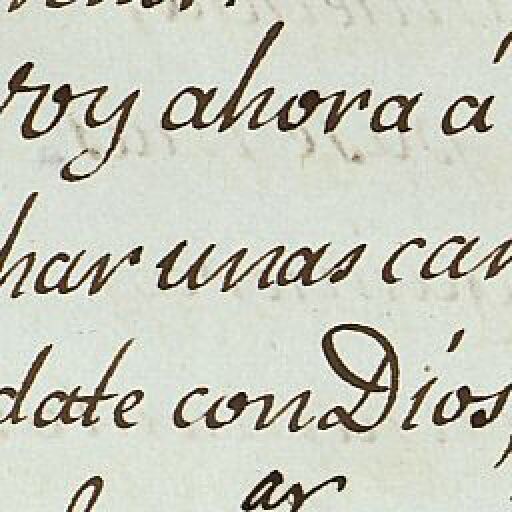 voy ahora á
har unas car
date con Diós,
ar